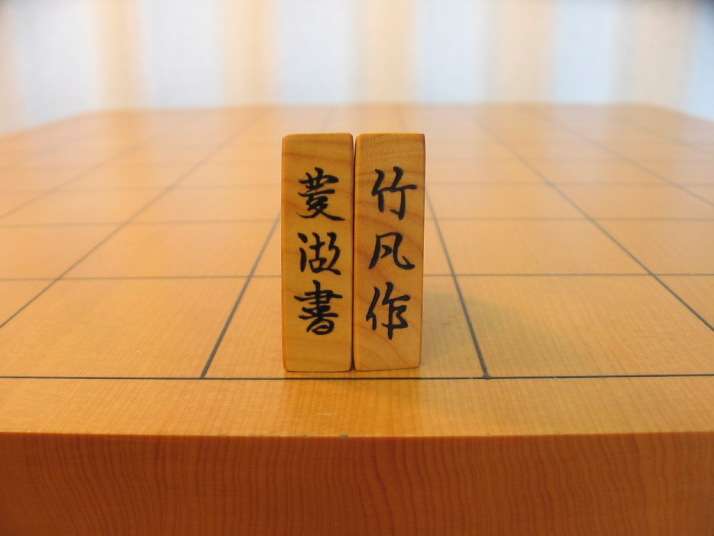 竹凡作
菱湖書